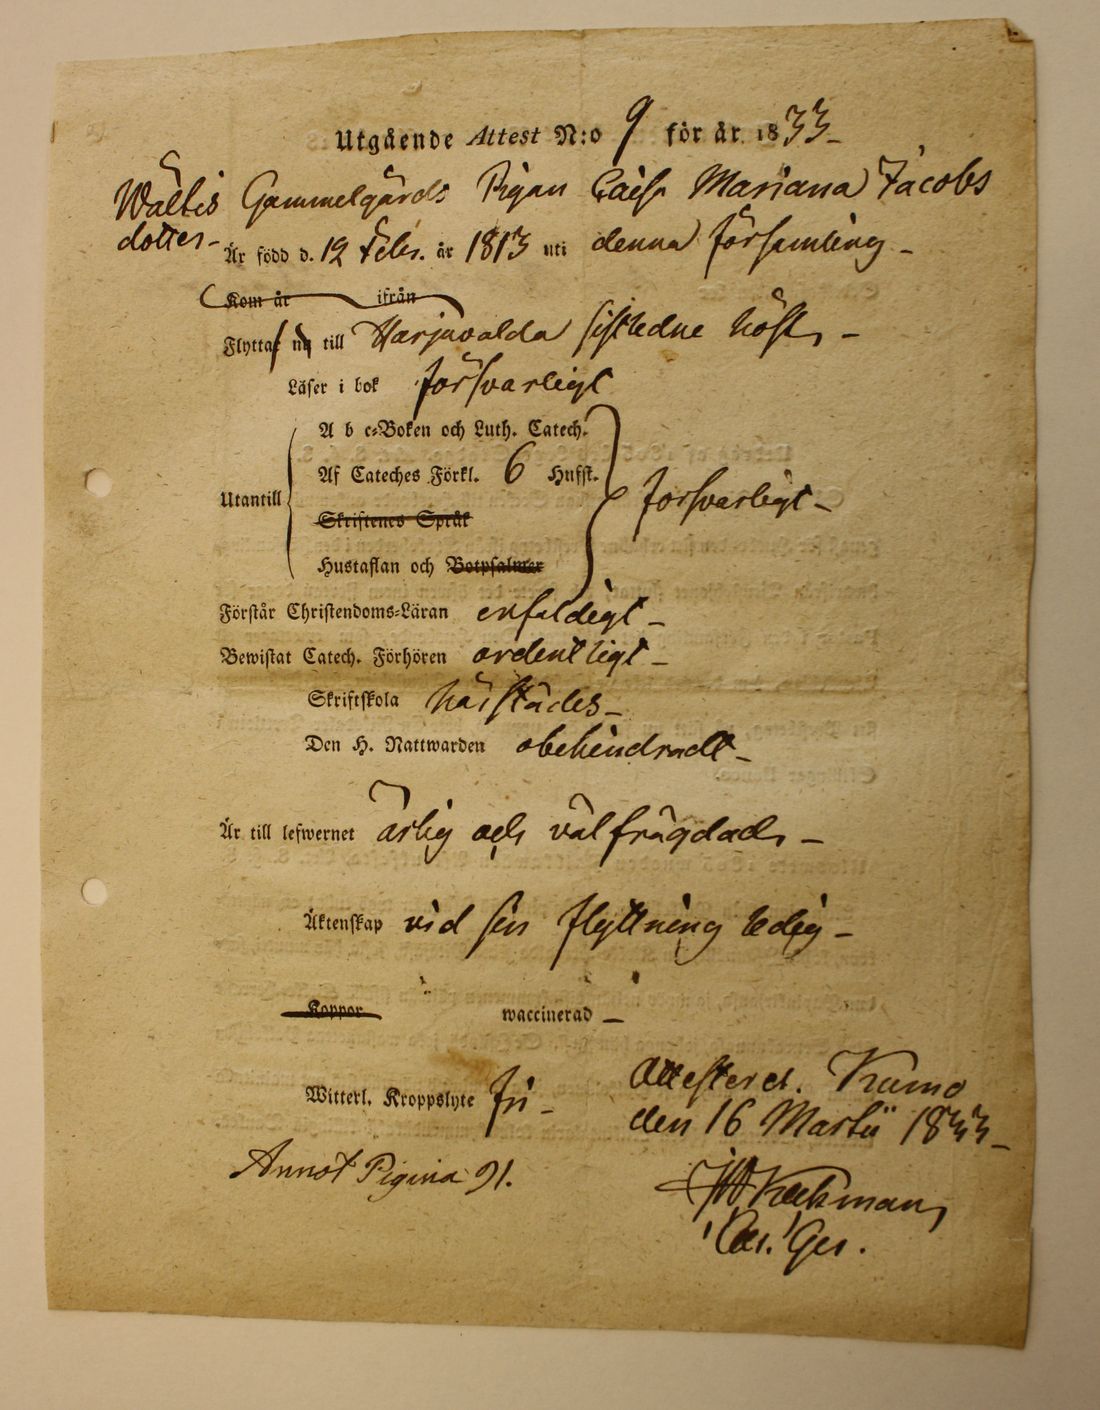 Utgående Attest N:o 9 för år 1833
Wältis Gammelgårds Pigan Caisa Mariana Jacobs
dotter
Är född d. 12 Febr. år 1813 uti denna församling
Kom år ifrån
Flyttat till Harjavalda sistledne höst
Läser i bok försvarligt
A b c-Boken och Luth. Catech.
Af Cateches Förkl. 6 Hufst.
Utantill försvarligt
Skriftenes Språk
Hustaflan och Botpsalmer
Förstår Christendoms-Läran enfaldigt
Bewistat Catech. Förhören ordentligt
Skriftskola härstädes
Den H. Nattwarden obehindradt
Är till lefwernet ärlig och välfrägdad
Äktenskap vid sin flyttning ledig
Koppor waccinerad
Witterl. Kroppslyte fri
Attesterar. Kumo
den 16 Martii 1833
Annot Pigina 91.